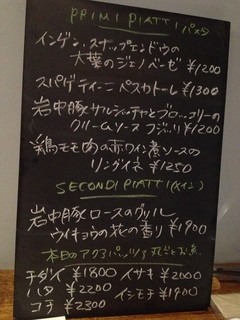 PRIMI PIATTI (パスタ)
インゲン、スナップエンドウの
大葉のジェノベーゼ ¥1200
スパゲティーニ ペスカトーレ ¥1300
岩中豚サルシッチャとブロッコリーの
クリームソース フジッリ ¥1200
鶏モモ肉の赤ワイン煮ソースの
リングイネ ¥1250
SECONDI PIATTI (メイン)
岩中豚ロースのグリル
ウイキョウの花の香り ¥1900
本日のアクアパッツァ 丸ごとお魚
チダイ ¥1800 イサキ ¥2000
ハタ ¥2200 イシモチ ¥1900
コチ ¥2300